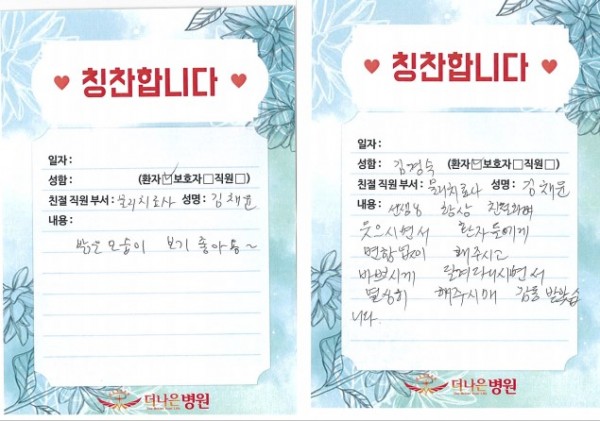 칭찬합니다
일자 :
성함 : (환자☑보호자☐직원☐)
친절 직원 부서 : 물리치료사 성명 : 김채윤
내용 :
밝은 모습이 보기 좋아용~
더나은병원
칭찬합니다
일자 :
성함 : 김경숙 (환자☑보호자☐직원☐)
친절 직원 부서 : 물리치료사 성명 : 김채윤
내용 : 선생님 항상 친절하며
웃으시면서 환자분에게
변함없이 해주시고
바쁘시게 달려다니시면서
열심히 해주시매 감동 받았습
니다.
더나은병원